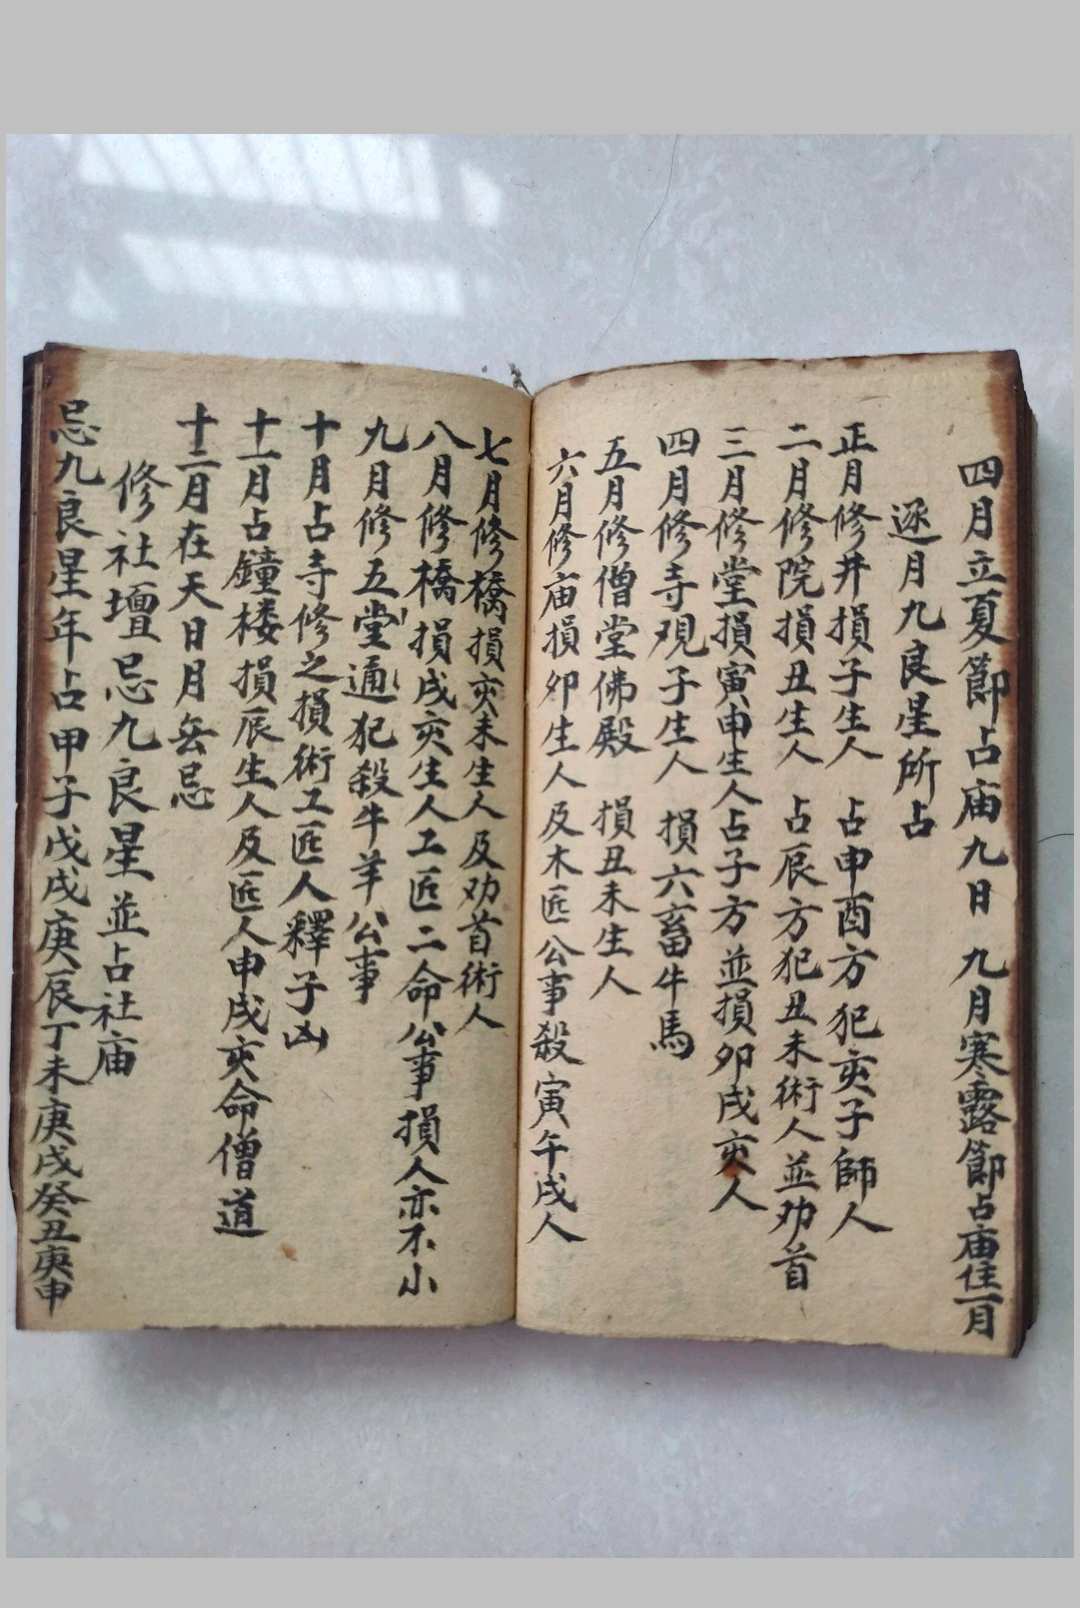 四月立夏節占庙九日 九月寒露節占庙住一月
逐月九良星所占
正月修井損子生人 占申酉方犯亥子師人
二月修院損丑生人 占辰方犯丑未術人並劝首
三月修堂損寅申生人占子方並損卯戌亥人
四月修寺观子生人 損六畜牛馬
五月修僧堂佛殿 損丑未生人
六月修庙損卯生人及木匠公事殺寅午戌人
七月修橋損亥未生人及劝首術人
八月修橋損戌亥生人工匠二命公事損人亦不小
九月修五堂通犯殺牛羊公事
十月占寺修之損術工匠人釋子凶
十一月占鐘楼損辰生人及匠人申戌亥命僧道
十二月在天日月無忌
修社壇忌九良星並占社庙
忌九良星年占甲子戊戌庚辰丁未庚戌癸丑庚申